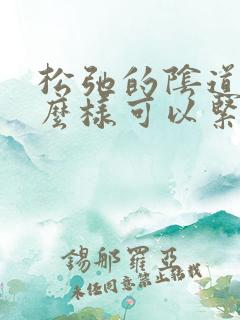 松弛的陰道
麼樣可以緊
錫那羅亞
未经同意禁止转载